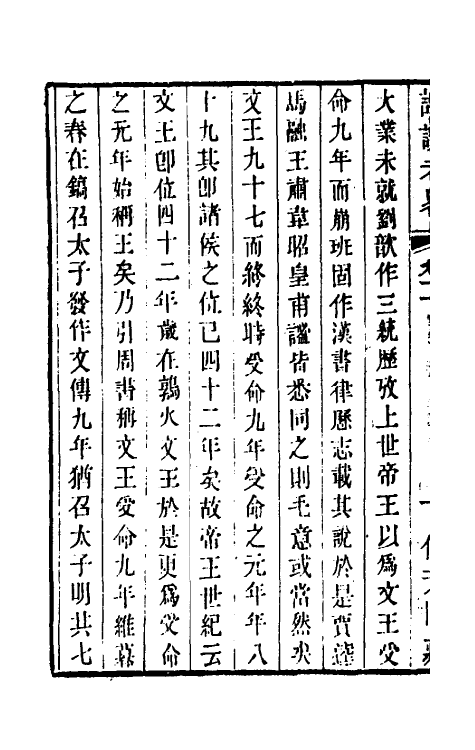 大業未就劉歆作三統歷攷上世帝王以爲文王受
命九年而崩班固作漢書律歷志載其說於是賈逵
馬融王肅韋昭皇甫謐皆悉同之則毛意或當然矣
文王九十七而終終時受命九年受命之元年年八
十九其卽諸侯之位已四十二年矣故帝王世紀云
文王卽位四十二年歲在鶉火文王於是更爲受命
之元年始稱王矣乃引周書稱文王受命九年維暮
之春在鎬召太子發作文傳九年猶召太子明其七